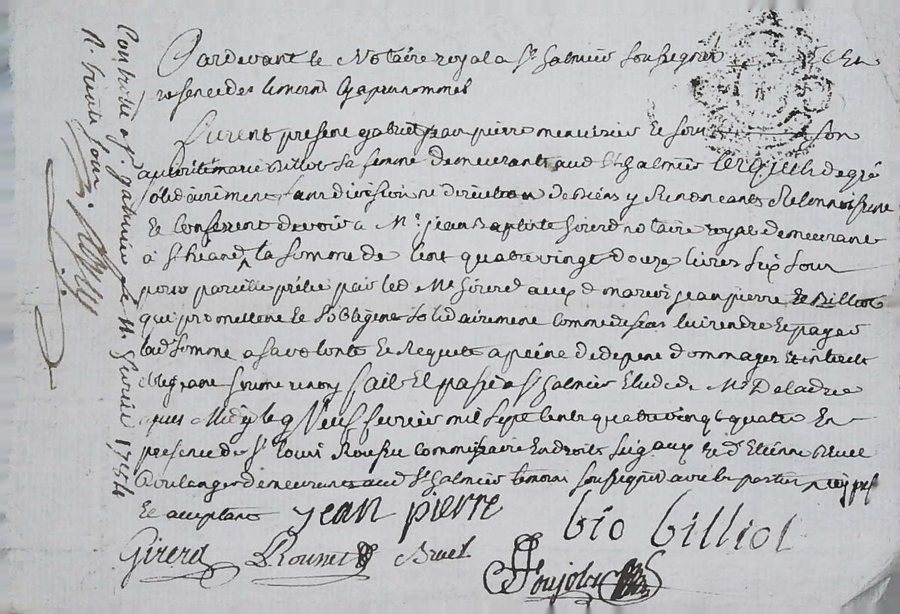 Pardevant le Notaire royal a St galmier Soussigné et En
presence des temoins Cy apres nommés
furent present gabriel jean pierre menuisier et sous son
autorité marie Billiot sa femme demeurants aud St Galmier lesquels de gré
solidairement sans division ni discution de biens y Renonceants Reconnoissent
et Confessent devoir a Mr. jean Baptiste Girerd notaire royal demeurant
a St heand la somme de Cent quatre vingt douze livres six sous
pour pareille prétée par led Me Girerd aux d mariés jean pierre et Billiot
qui promettent et s'obligent solidairement comme dessus lui rendre et payer
lad somme a sa volonté et Requete a peine de depens dommages et interets
obligeant soumettant fait et passé a St Galmier Etude de Me
apres Midy le 9 Neuf fevrier mil sept cents quatre vingt quatre En
presence de Sr Louis Rousset Commissaire En droits Seigaux et Sr Etienne Bruel
Boulanger demeurants aud St Galmier temoins soussignés avec les parties
Et acceptant jean pierre
bio billiot
Girerd Rousset Bruel
Controllé a St galmier le 11 fevrier 1784
R. trente sous